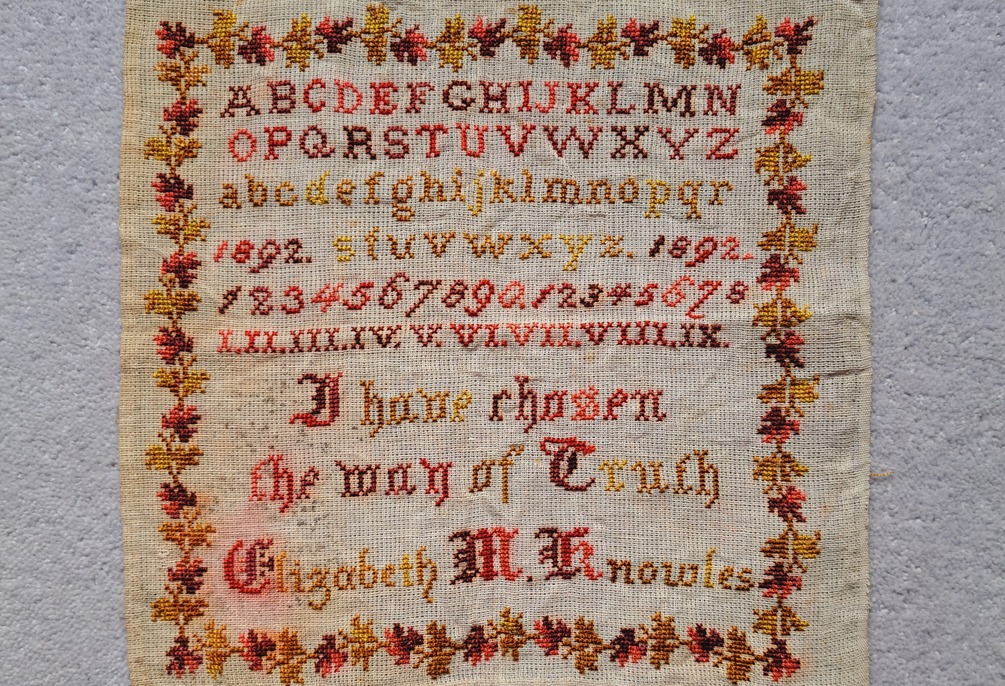 ABCDEFGHIJKLMN
OPQRSTUVWXYZ
abcdefghijklmnopqr
1892. stuvwxyz. 1892.
1234567890 12345678
I.II.III.IV.V.VI.VII.VIII.IX.
I have chosen
the way of Truth
Elizabeth M. Knowles.